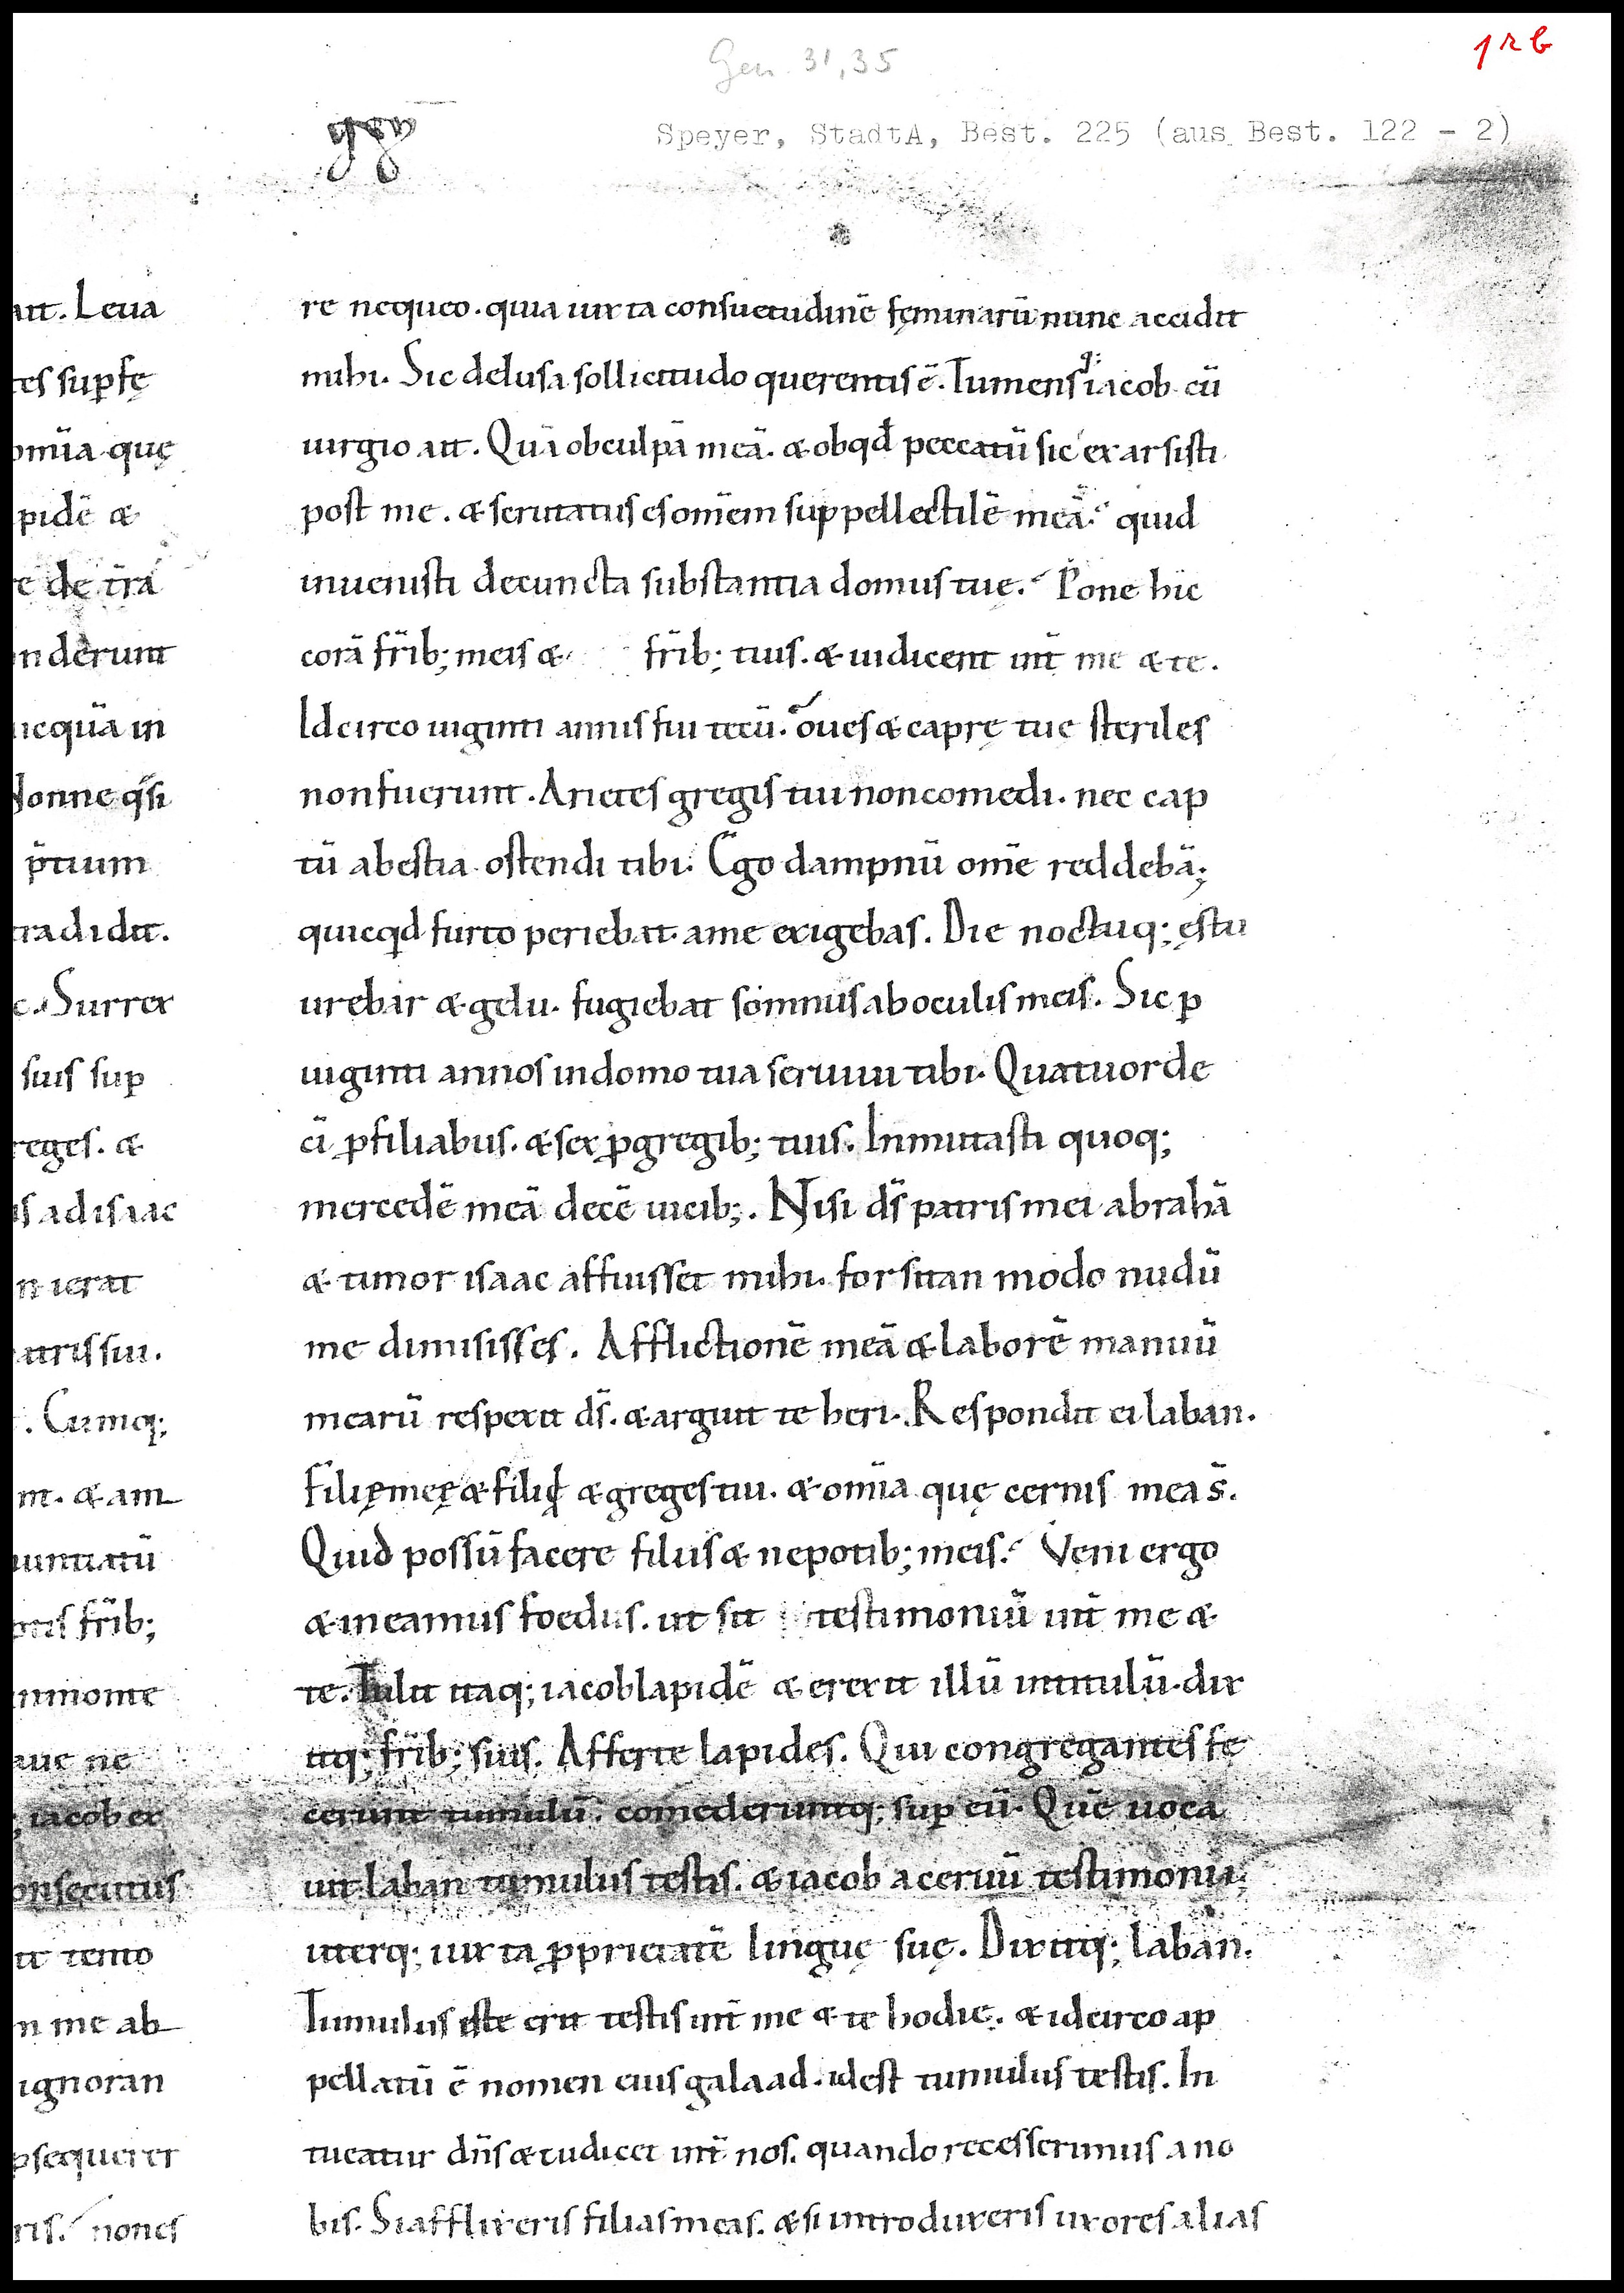 Gen. 31,35
1rb
Speyer, StadtA, Best. 225 (aus Best. 122 - 2)
ait. Leua
tes suꝑ fę
om̄ia quę
pidē &
re de t̄ra
nderunt
icquā in
Nonne q̇si
p̄tium
tradidit.
c. Surrex
suis suꝑ
reges. &
is ad isaac
n ierat
atris sui.
. Cumq;
m. & am
nuntiatū
frīb;
in monte
aue ne
; iacob ex
onsecutus
it temo
n me ab
ignoran
ꝑsequerer
ris. nones
re nequeo. quia iuxta consuetudinē fęminarū nunc accidit
mihi. Sic delusa sollicitudo querentis ē. Tumensq: iacob cū
iurgio ait. Quā ob culpā meā. & ob qd̄ peccatū sic exarsisti
post me. & scrutatus es om̄em suppellectilē meā. quid
inuenisti de cuncta substantia domus tuę. Pone hic
corā frīb; meis & frīb; tuis. & iudicent int̄ me & te.
Idcirco uiginti annis fui tecū. oues & caprę tuę steriles
non fuerunt. Arietes gregis tui non comedi. nec cap
tū a bestia ostendi tibi. Ego dampnū om̄e reddebā;
quicqd furto periebat a me exigebas. Die noctuq; ęstu
urebar & gelu. fugiebat somnus ab oculis meis. Sic ꝑ
uiginti annos in domo tua seruiui tibi. Quatuorde
cī ꝓ filiabus. & sex ꝓ gregib; tuis. Inmutasti quoq;
mercedē meā decē uicib;. Nisi ds̄ patris mei abrahā
& timor isaac affuisset mihi. forsitan modo nudū
me dimisisses. Afflictionē meā & laborē manuū
mearū respexit ds̄. & arguit te heri. Respondit ei laban.
Filię meę & filii & greges tui. & om̄ia quę cernis mea s̄.
Quid possū facere filiis & nepotib; meis. Veni ergo
& ineamus foedus. ut sit testimoniū int̄ me &
te. Tulit itaq; iacob lapidē & erexit illū in titulū. dix
itq; frīb; suis. Afferte lapides. Qui congregantes fe
cerunt tumulū. comederuntq; suꝑ eū. Quē uoca
uit laban tumulus testis. & iacob aceruū testimonii;
uterq; iuxta ꝓprietatē linguę suę. Dixitq; laban.
Tumulus iste erit testis int̄ me & te hodie. & idcirco ap
pellatū ē nomen eius galaad. id est tumulus testis. In
tueatur dn̄s & iudicet int̄ nos. quando recesserimus a no
bis. Si afflixeris filias meas. & si introduxeris uxores alias